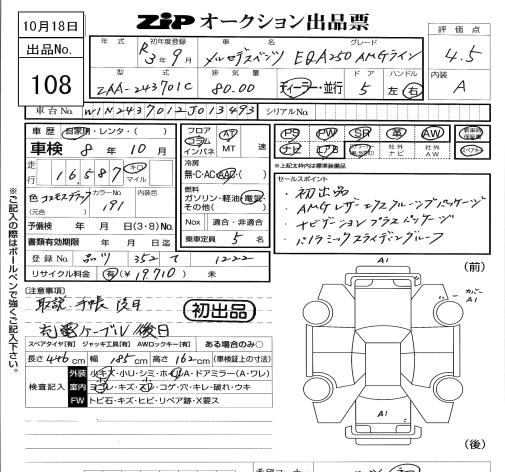 10月18日
ZiP オークション出品票
出品No.
108
年式 初年度登録 車名 グレード
R3年9月 メルセデスベンツ EQA250 AMGライン
評価点
4.5
内装
A
型式 排気量 ドア ハンドル
ZAA-243701C 80.00 ディーラー・並行 5 左 右
車台No. W1N2437012J013493 シリアルNo.
車歴 自家用・レンタ・( )
車検 8年10月
走行 16,587 キロ マイル
色 コスモスブラック カラーNo. 191 内装色
(元色)
予備検 年 月 日(3・8)No.
書類有効期限 年 月 日迄
登録No. 品川 352 て 1222
リサイクル料金 有(¥19,710) 未
フロア コラム インパネ
AT MT 速
冷房
無・C・AC・AAC・( )
燃料
ガソリン・軽油・電気・その他( )
Nox 適合・非適合
乗車定員 5 名
PS PW SR 革 AW 新車時保証書
ナビ エアB 社外ナビ 社外AW
★上記太枠内は標準装備品
セールスポイント
・初出品
・AMGレザーエクスクルーシブパッケージ
・ナビゲーションプラスパッケージ
・パノラミックスライディングルーフ
[注意事項]
取説 手帳 後日
充電ケーブル 後日
初出品
スペアタイヤ[有] ジャッキ工具[有] AWロックキー[有] ある場合のみ○
長さ446cm 幅185cm 高さ162cm (車検証上の寸法)
検査記入
外装 小キズ・小U・シミ・ホイルA・ドアミラー(A・ワレ)
室内 ヨゴレ・キズ・スレ・コゲ・穴・キレ・破れ・ウキ
FW トビ石・キズ・ヒビ・リペア跡・X要ス
A1
(前)
カバー
A1
A1
(後)
※ご記入の際はボールペンで強くご記入下さい。